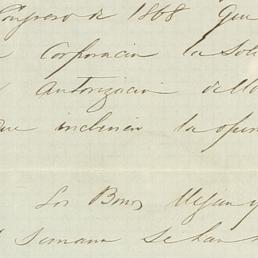 Congreso de 1868 que
Corporacion la Soli
Autorizacion de
que inclinen la opin
Los Bonos
semana se han